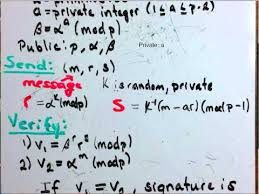 a = private integer (1≤a≤p-2)
β = α^a (mod p)
Public: p, α, β
Private: a
Send: (m, r, s)
message K is random, private
r = α^k (mod p) S = k^-1 (m-ar) (mod p-1)
Verify:
1) v₁ = β^r r^s (mod p)
2) v₂ = α^m (mod p)
If v₁ = v₂, signature is